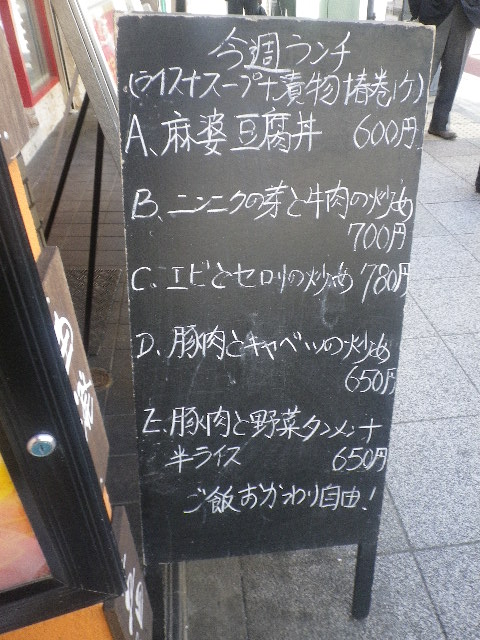 今週ランチ
(ライス+スープ+漬物 椿巻1ケ)
A、麻婆豆腐丼 600円
B、ニンニクの芽と牛肉の炒め
700円
C、エビとセロリの炒め 780円
D、豚肉とキャベツの炒め
650円
E、豚肉と野菜タンメン+
半ライス 650円
ご飯おかわり自由!